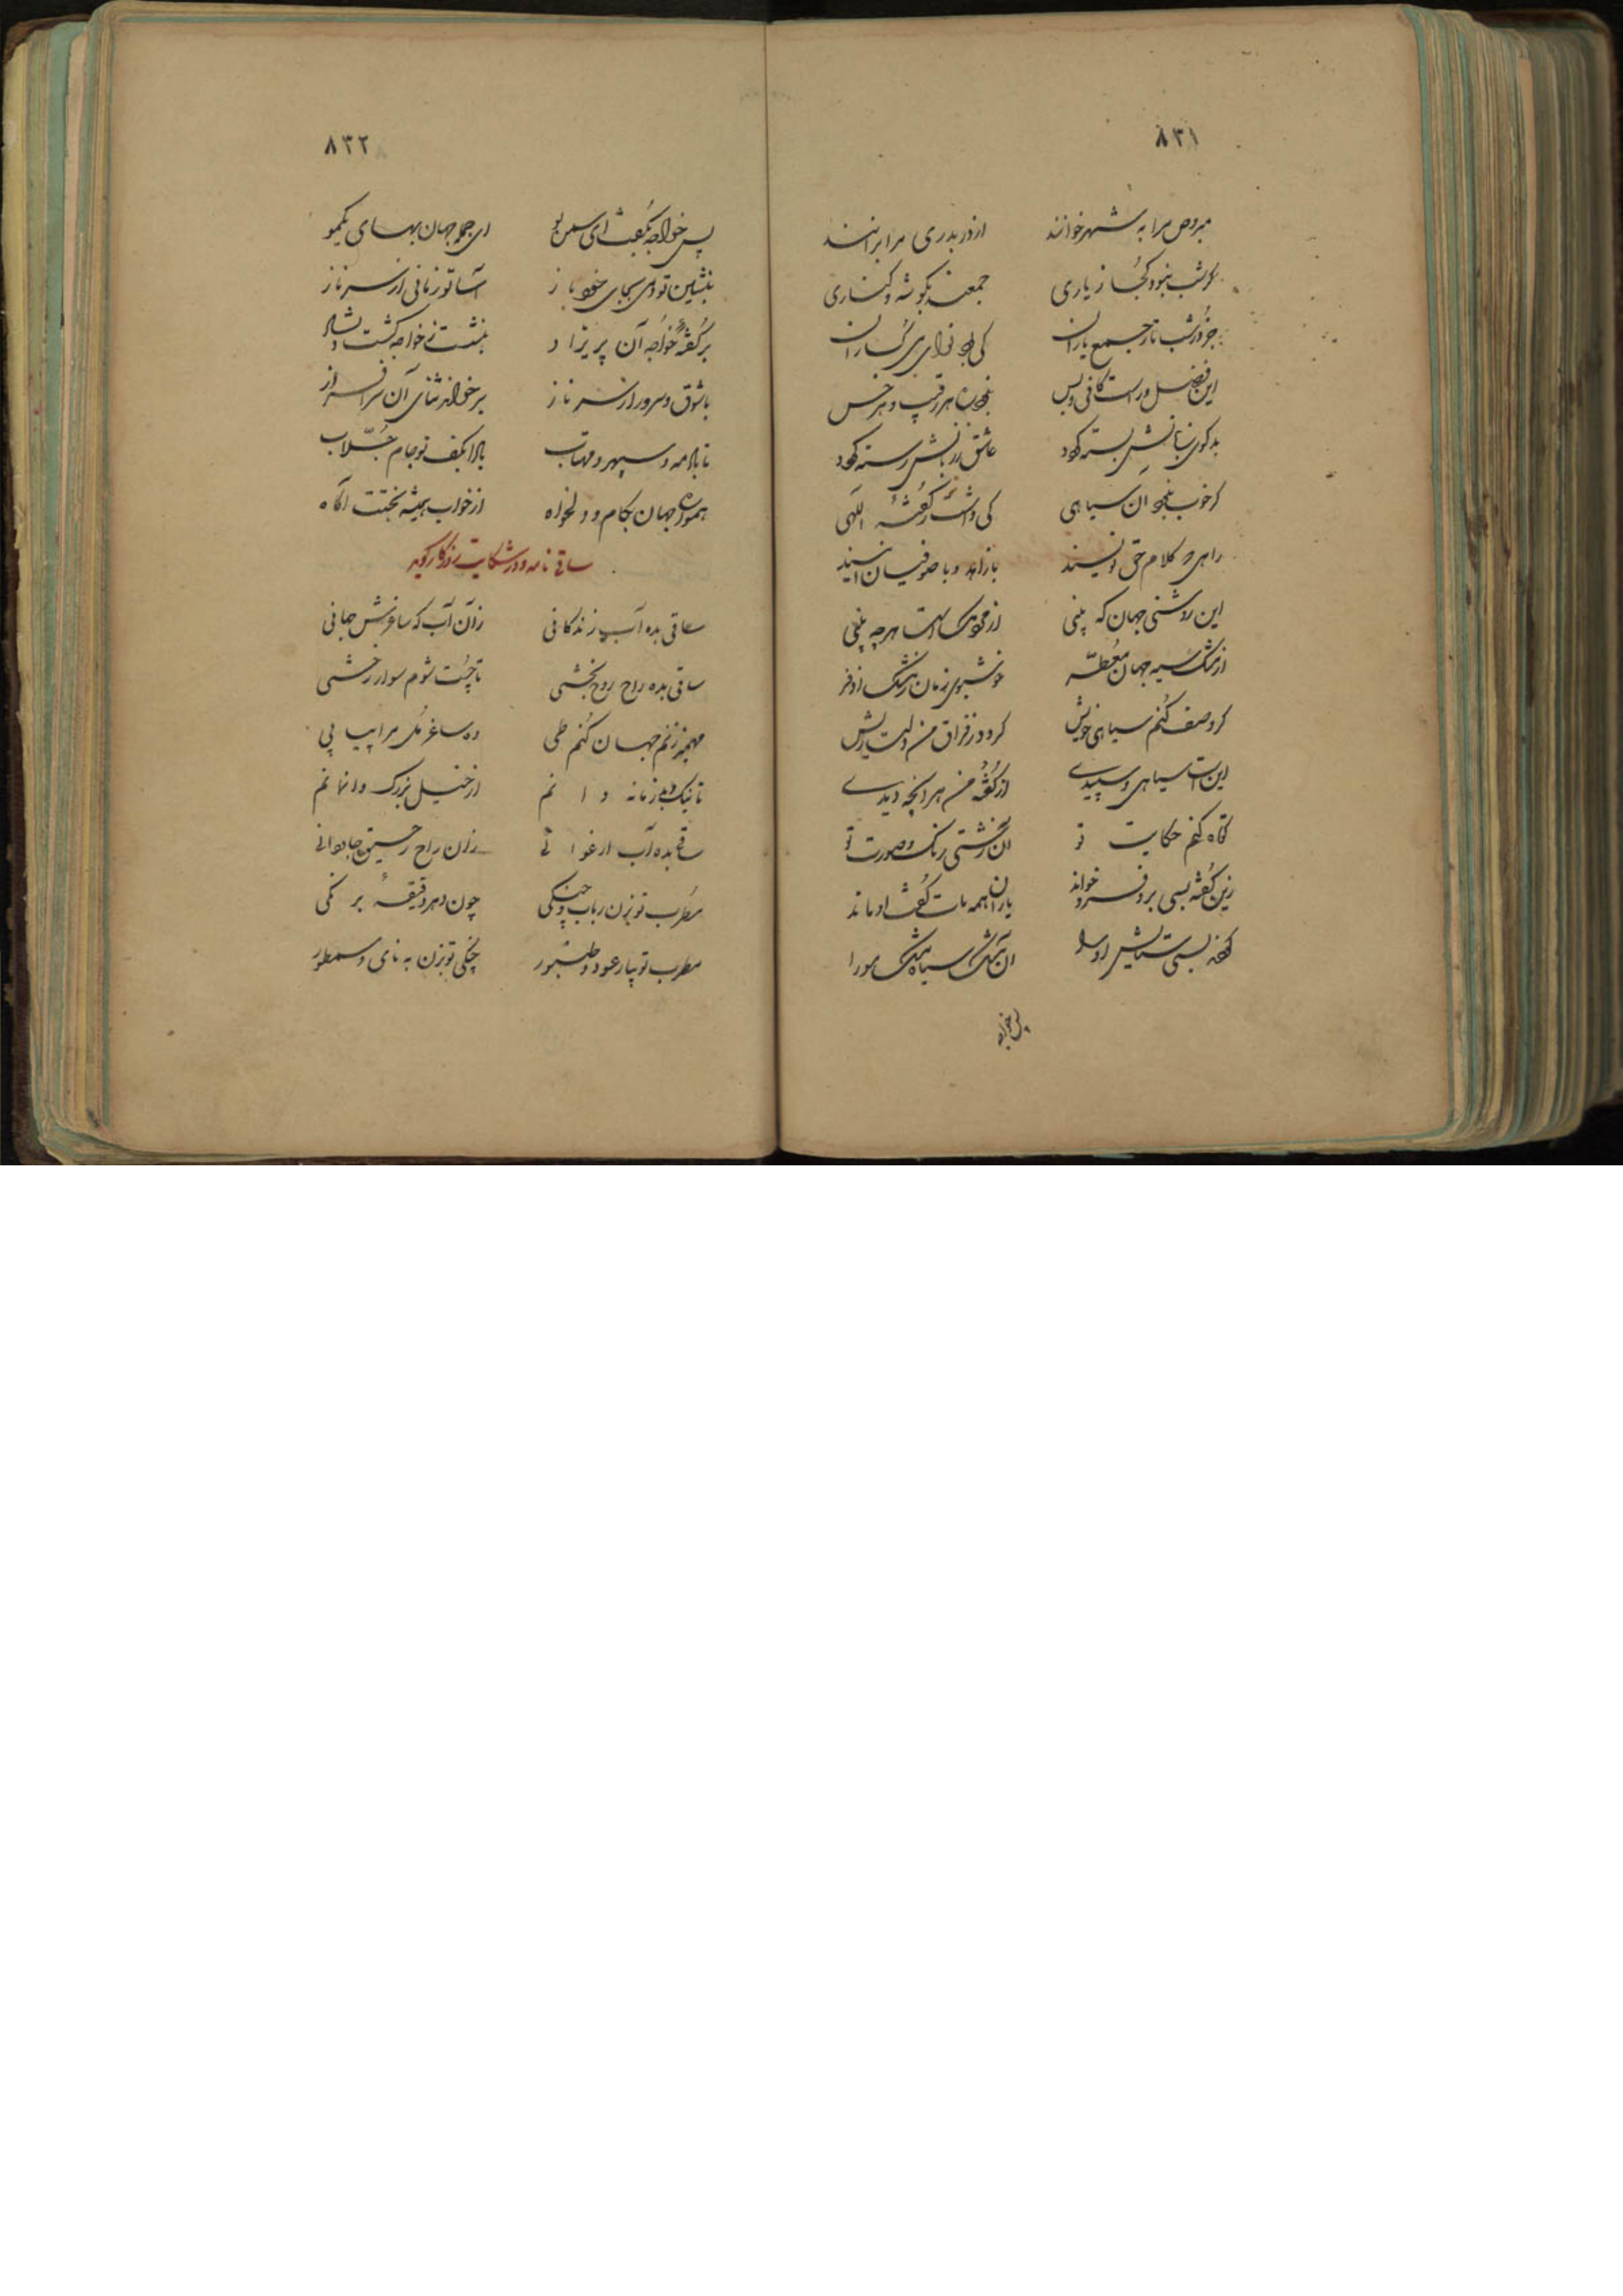 ۸۳۱
مبروص مرا به شهر خوانند از در بدری مرا برانند
گر شب نبود کجا ز یاری جمعند بگوشه و کناری
جز در شب تار جمع یاران کی بود
این فضل ور است کافی و بس هر رقیب و هر خس
بدگوی بسته گردد عاشق رسته گردد
گر خوب نبود آن سیاهی کی داشت گفته الهی
کلام حق نویسند با زاهد و با صوفیان
این روشنی جهان که بینی از است هر چه بینی
از مشک سیه جهان معطر خوشبوی زمان ز مشک اذفر
گر وصف کنم سیاهی خویش گردد ز فراق من دلت ریش
این است سیاهی و سپیدی از گفته من هر آنچه دیدی
کوتاه کنم حکایت تو آن زشتی رنگ و صورت تو
زین گفته بسی برو فرو خواند یاران همه مات گفت او ماند
گفته بسی ستایش او را آن مشک سیاه مشک مو را
پس خواجه
۸۳۲
پس خواجه بگفت ای سمن بو ای جمله جهان بهای یکمو
بنشین تو دمی بجای خود باز آسا تو زمانی از سر ناز
بر گفته خواجه آن پریزاد بنشست ز خواجه گشت دلشاد
با شوق و سرور از سر ناز برخواند ثنای آن سرافراز
تا باد مه و سپهر و مهتاب بادا بکف تو جام جلاب
همواره جهان بکام و دلخواه از خواب همیشه بختت آگاه
ساقی نامه و در شکایت روزگار گوید
ساقی بده آب زندگانی زان آب که ساغرش جانی
ساقی بده راح روح بخشی تا چست شوم سوار رخشی
مهمیز زنم جهان کنم طی ده ساغر مل مرا پیاپی
تا نیک و بد زمانه دانم از خیل بزرگ وا نمانم
ساقی بده آب ارغوانی زان راح رحیق جاودانی
مطرب تو بزن رباب و چنگی چون دهر دقیقه بر
مطرب تو بیار عود و طنبور چنگی تو بزن به نای و سمطور